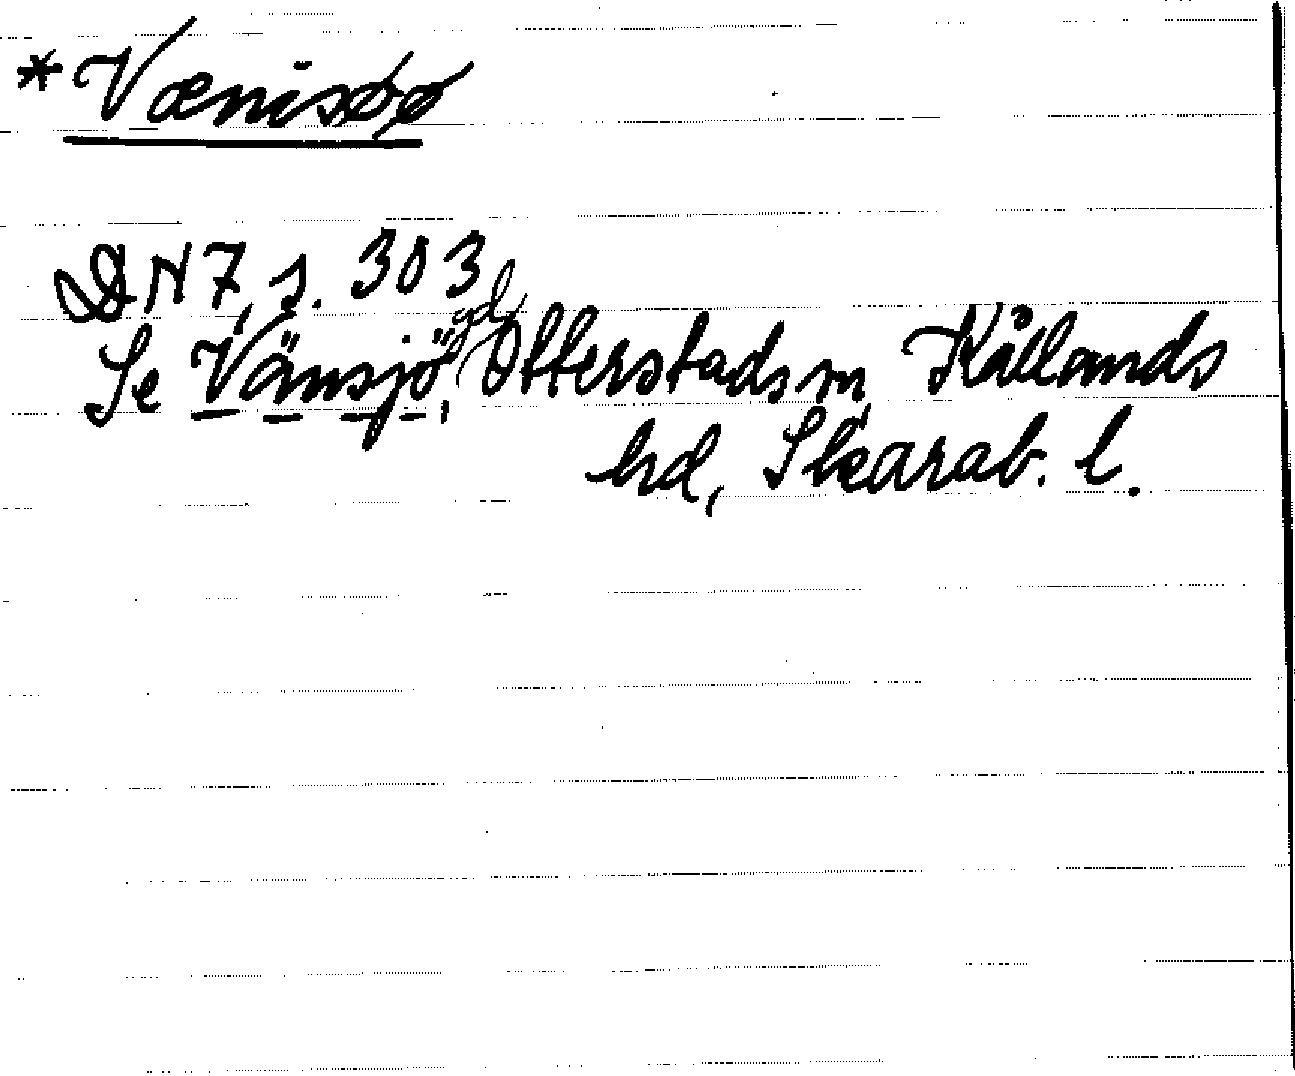 *Vænisøø
DN 7, s. 303
Se Vänsjö, gd, Otterstads sn, Kållands
hd, Skarab. l.